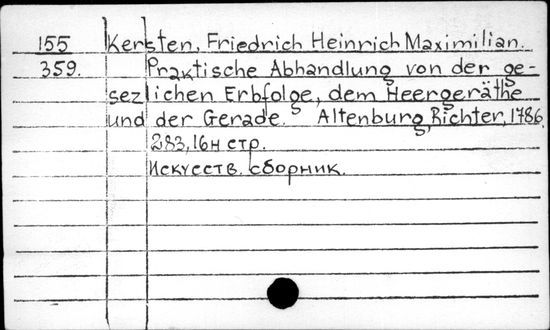 155 Kersten, Friedrich Heinrich Maximilian.
359. Praktische Abhandlung von der ge-
sezlichen Erbfolge, dem Heergeräthe
und der Gerade. Altenburg, Richter, 1786.
283, 16н стр.
Искусств. сборник.